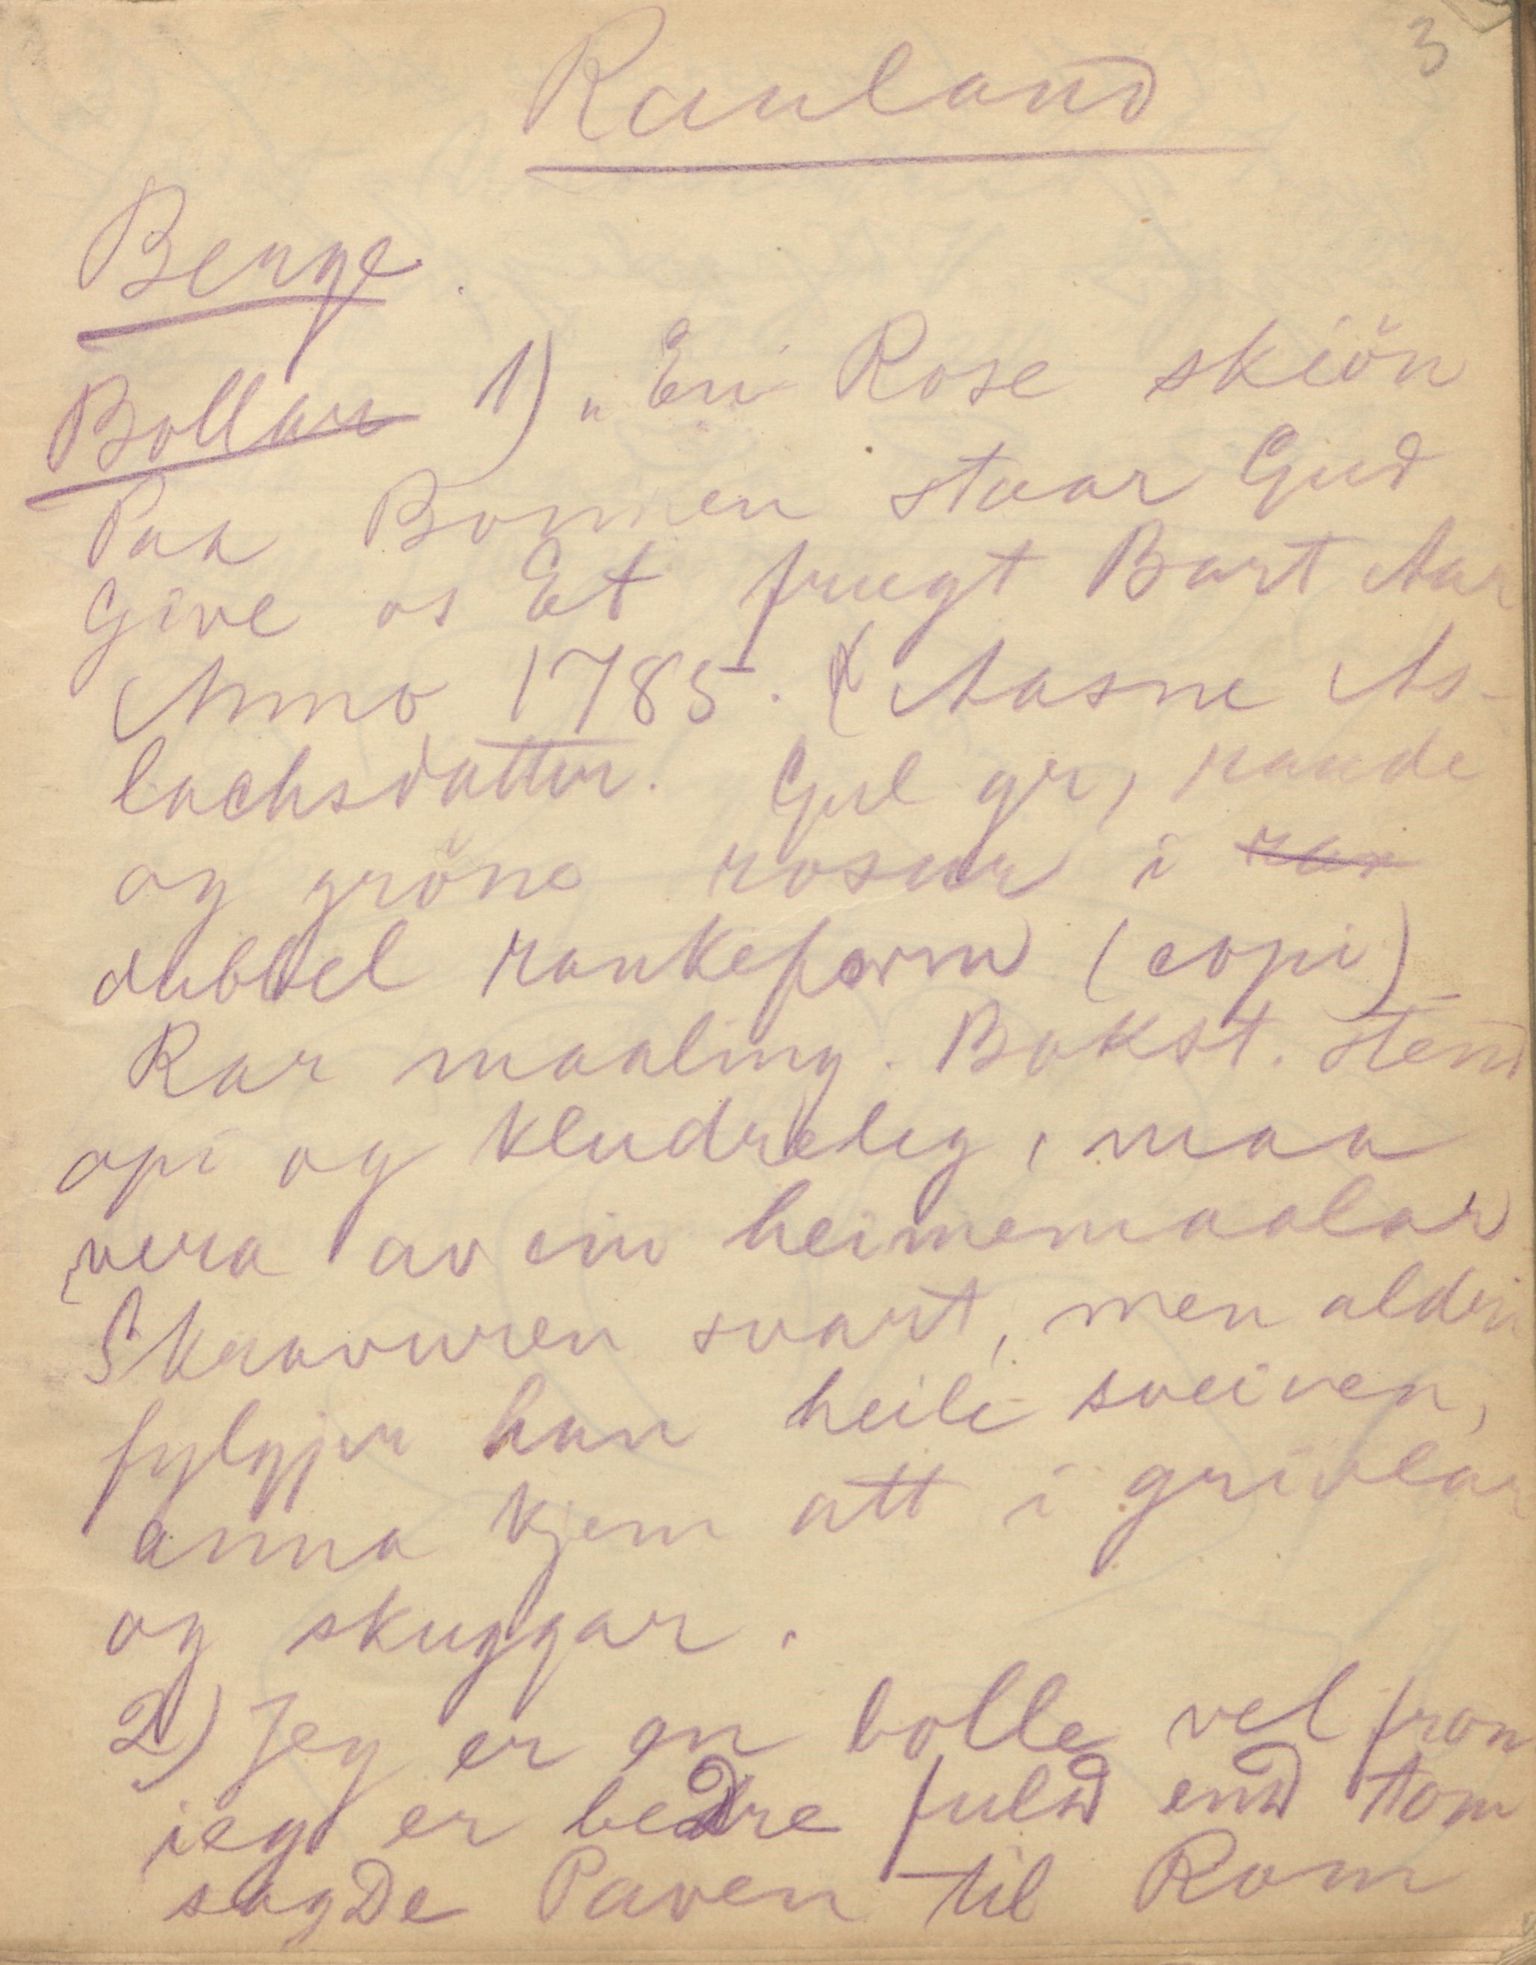 3
Rauland
Berge.
Bollar 1) „En Rose skiön
Paa Bommen staar Gud
Give os Et frugt Bart Aar
Anno 1785. Aasne As-
lachsdatter. Gul gr, raude
og gröne rosur i
dubbel rankeform (copi)
Rar maaling. Bokst. stend
opi og kludreleg, maa
vera av ein heimemaalar
Skraavuren svart, men aldri
fylgjer han heile sveiven,
anna kjem att i grivlar
og skuggar.
2) Jeg er en bolle vel from
ieg er bedre fuld end tom
sagde Paven til Rom